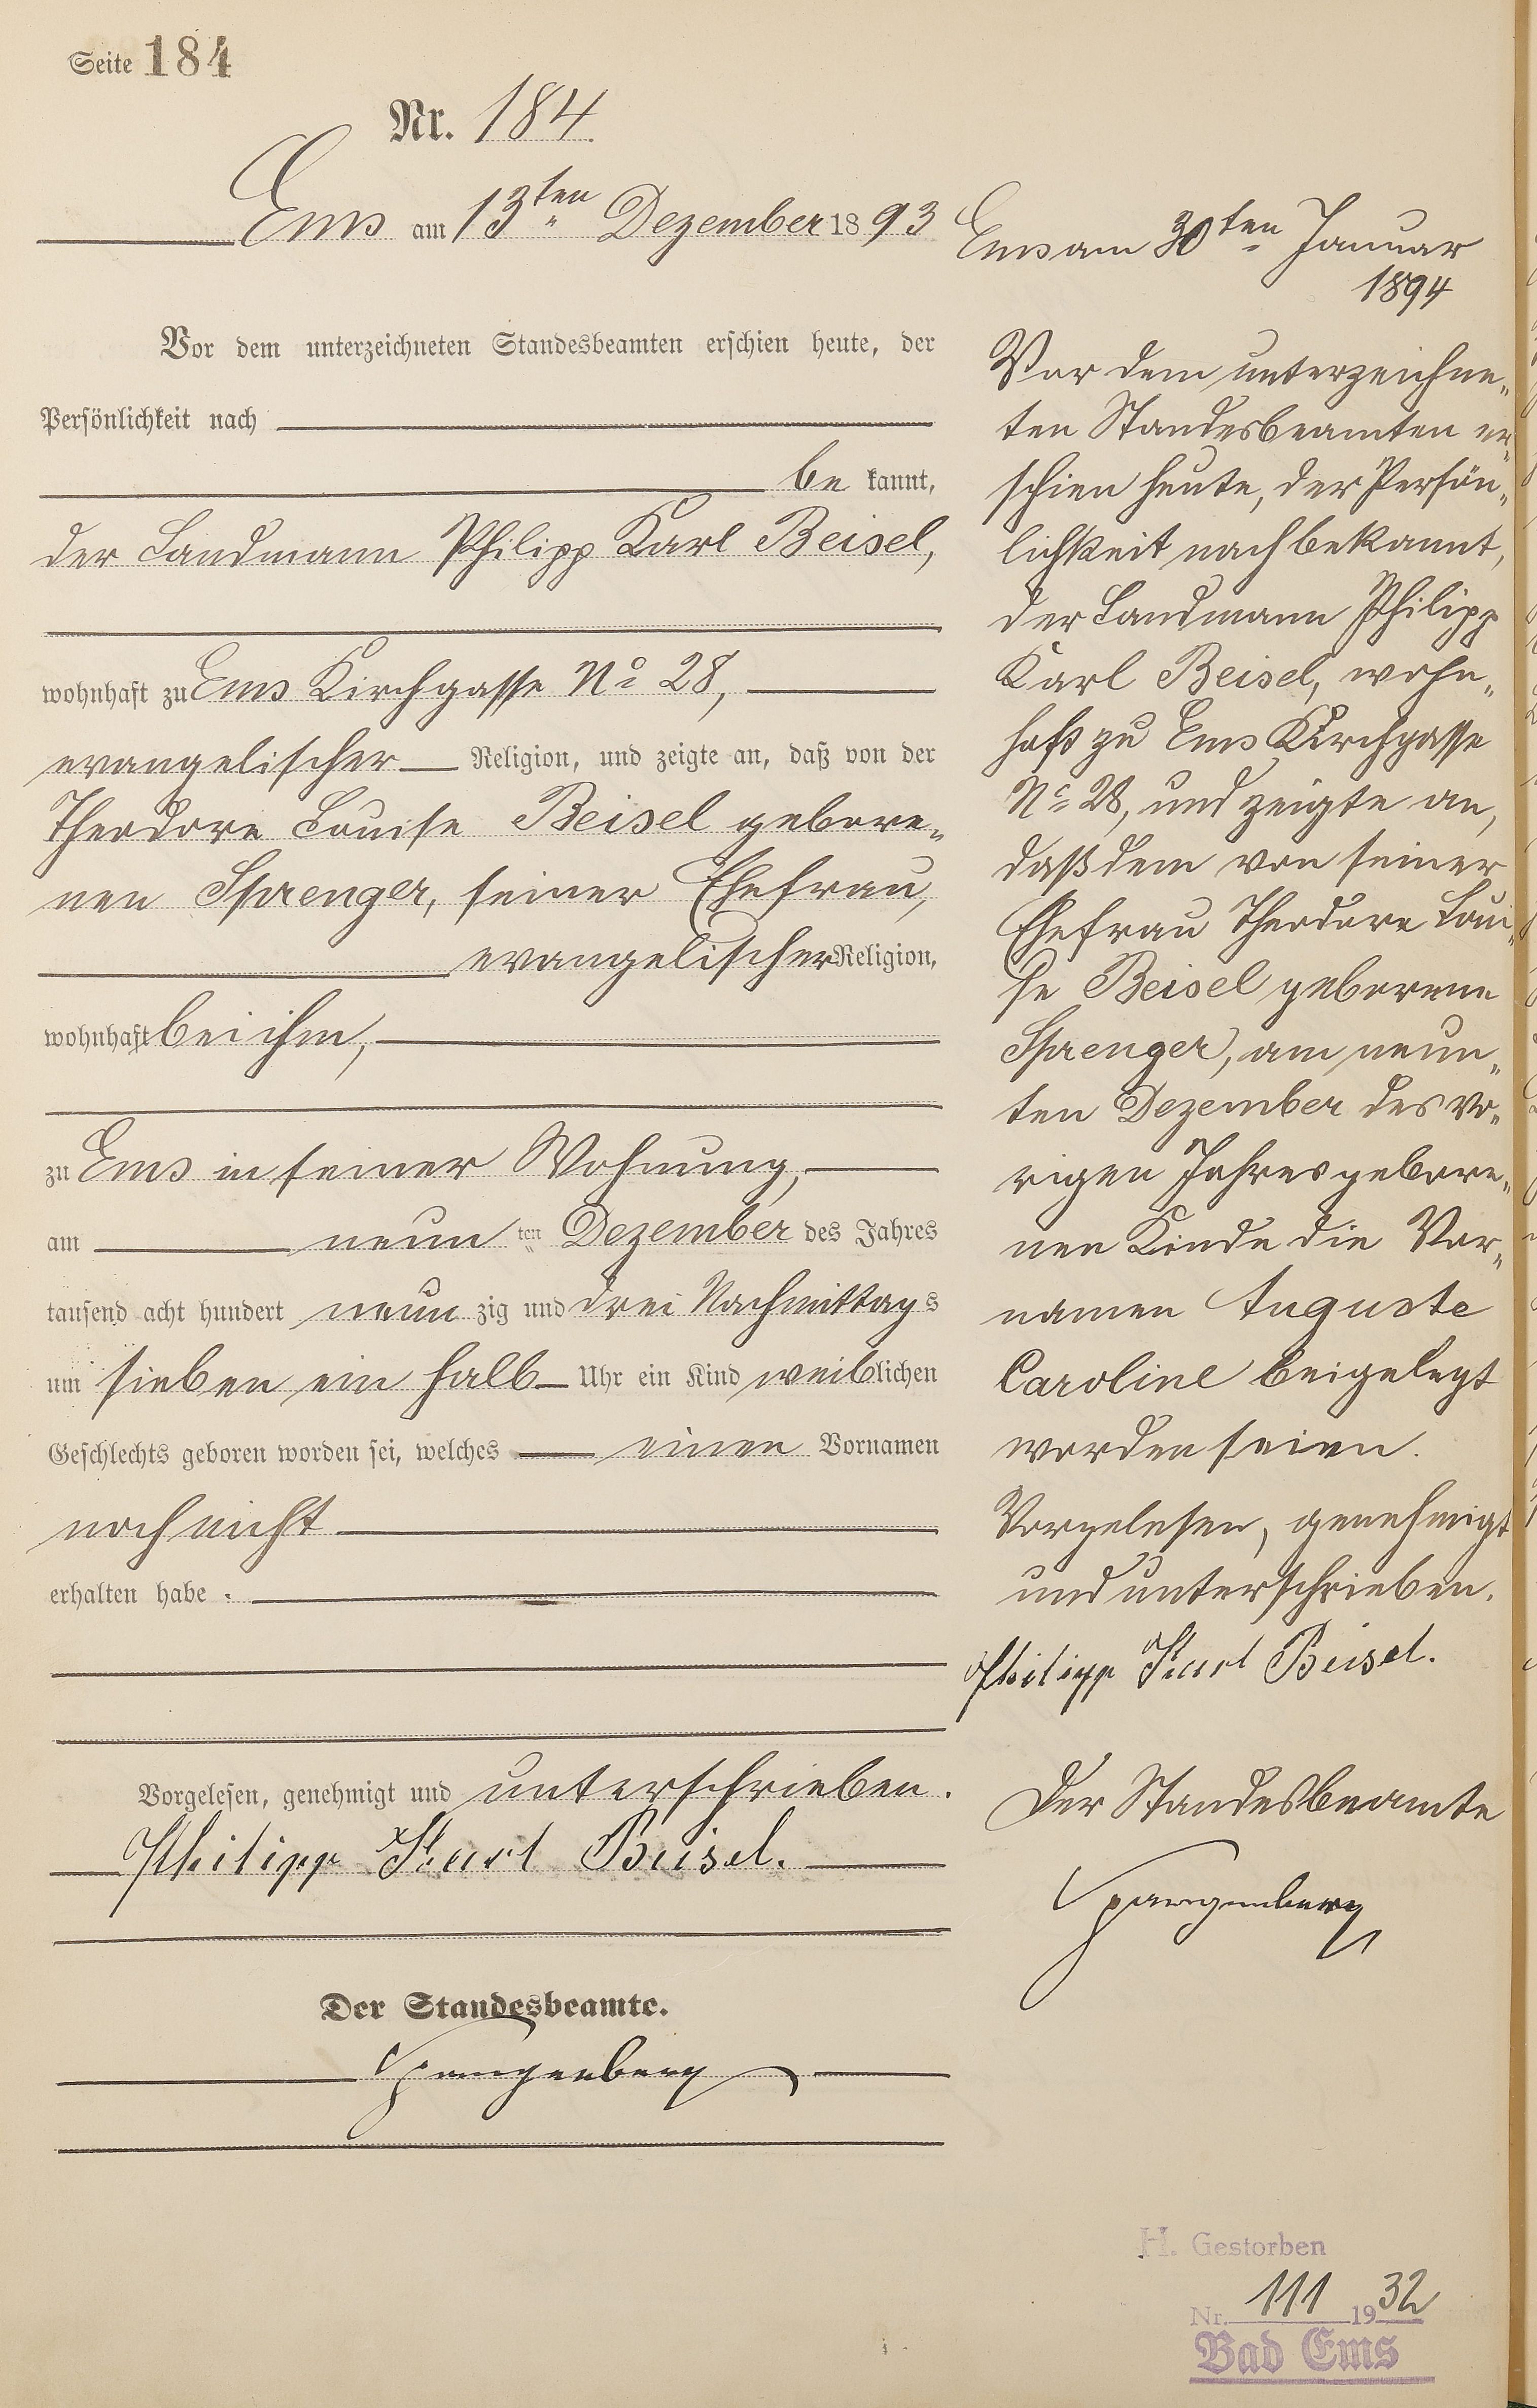 Seite 184
Nr. 184
Ems am 13ten Dezember 1893
Vor dem unterzeichneten Standesbeamten erschien heute, der
Persönlichkeit nach
be kannt,
der Landmann Philipp Karl Beisel,
wohnhaft zu Ems Kirchgasse No 28,
evangelischer Religion, und zeigte an, daß von der
Theodore Louise Beisel gebore-
nen Sprenger, seiner Ehefrau,
evangelischer Religion,
wohnhaft bei ihm,
zu Ems in seiner Wohnung,
am neun ten Dezember des Jahres
tausend acht hundert neun zig und drei Nachmittags
um sieben ein halb Uhr ein Kind weiblichen
Geschlechts geboren worden sei, welches einen Vornamen
noch nicht
erhalten habe.
Vorgelesen, genehmigt und unterschrieben.
Philipp Karl Beisel.
Der Standesbeamte.
Spangenberg
Ems am 30ten Januar
1894
Vor dem unterzeichne-
ten Standesbeamten er-
schien heute, der Persön-
lichkeit nach bekannt,
der Landmann Philipp
Karl Beisel, wohn-
haft zu Ems Kirchgasse
No 28, und zeigte an,
daß dem von seiner
Ehefrau Theodore Loui-
se Beisel geborene
Sprenger, am neun-
ten Dezember des vo-
rigen Jahres gebore-
nen Kinde die Vor-
namen Auguste
Caroline beigelegt
worden seien.
Vorgelesen, genehmigt
und unterschrieben.
Philipp Karl Beisel.
Der Standesbeamte
Spangenberg
H. Gestorben
Nr. 111 1932
Bad Ems